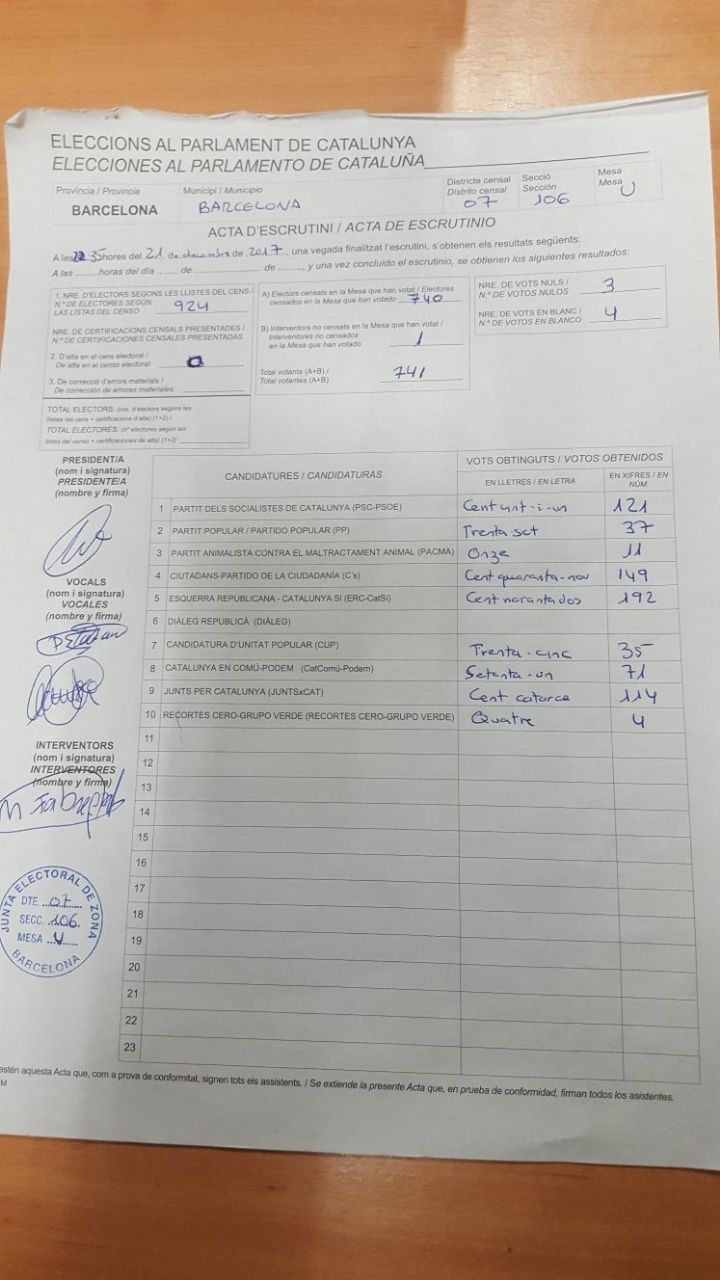 ELECCIONS AL PARLAMENT DE CATALUNYA
ELECCIONES AL PARLAMENTO DE CATALUÑA
Província / Provincia Municipi / Municipio Districte censal Secció Mesa
Distrito censal Sección Mesa
BARCELONA BARCELONA 07 106 U
ACTA D'ESCRUTINI / ACTA DE ESCRUTINIO
A les 22 35 hores del 21 de desembre de 2017, una vegada finalitzat l'escrutini, s'obtenen els resultats següents:
A las ........ horas del día ....... de .......................... de ........, y una vez concluido el escrutinio, se obtienen los siguientes resultados:
1. NRE. D'ELECTORS SEGONS LES LLISTES DEL CENS /
N.º DE ELECTORES SEGÚN
LAS LISTAS DEL CENSO 924
NRE. DE CERTIFICACIONS CENSALS PRESENTADES /
N.º DE CERTIFICACIONES CENSALES PRESENTADAS
2. D'alta en el cens electoral /
De alta en el censo electoral: 0
3. De correcció d'errors materials /
De corrección de errores materiales:
TOTAL ELECTORS: (nre. d'electors segons les
llistes del cens + certificacions d'alta) (1+2) /
TOTAL ELECTORES: (nº electores según las
listas del censo + certificaciones de alta) (1+2)
A) Electors censats en la Mesa que han votat / Electores
censados en la Mesa que han votado 740
B) Interventors no censats en la Mesa que han votat /
Interventores no censados
en la Mesa que han votado 1
Total votants (A+B) /
Total votantes (A+B) 741
NRE. DE VOTS NULS /
N.º DE VOTOS NULOS 3
NRE. DE VOTS EN BLANC /
N.º DE VOTOS EN BLANCO 4
CANDIDATURES / CANDIDATURAS VOTS OBTINGUTS / VOTOS OBTENIDOS
EN LLETRES / EN LETRA EN XIFRES / EN NÚM.
1 PARTIT DELS SOCIALISTES DE CATALUNYA (PSC-PSOE) Cent vint-i-un 121
2 PARTIT POPULAR / PARTIDO POPULAR (PP) Trenta set 37
3 PARTIT ANIMALISTA CONTRA EL MALTRACTAMENT ANIMAL (PACMA) Onze 11
4 CIUTADANS-PARTIDO DE LA CIUDADANÍA (C's) Cent quaranta-nou 149
5 ESQUERRA REPUBLICANA - CATALUNYA SI (ERC-CatSi) Cent noranta dos 192
6 DIÀLEG REPUBLICÀ (DIÀLEG)
7 CANDIDATURA D'UNITAT POPULAR (CUP) Trenta-cinc 35
8 CATALUNYA EN COMÚ-PODEM (CatComú-Podem) Setanta-un 71
9 JUNTS PER CATALUNYA (JUNTSxCAT) Cent catorce 114
10 RECORTES CERO-GRUPO VERDE (RECORTES CERO-GRUPO VERDE) Quatre 4
11
12
13
14
15
16
17
18
19
20
21
22
23
PRESIDENT/A
(nom i signatura)
PRESIDENTE/A
(nombre y firma)
VOCALS
(nom i signatura)
VOCALES
(nombre y firma)
INTERVENTORS
(nom i signatura)
INTERVENTORES
(nombre y firma)
JUNTA ELECTORAL DE ZONA
DTE. 07
SECC. 106.
MESA U
BARCELONA
estén aquesta Acta que, com a prova de conformitat, signen tots els assistents. / Se extiende la presente Acta que, en prueba de conformidad, firman todos los asistentes.
M